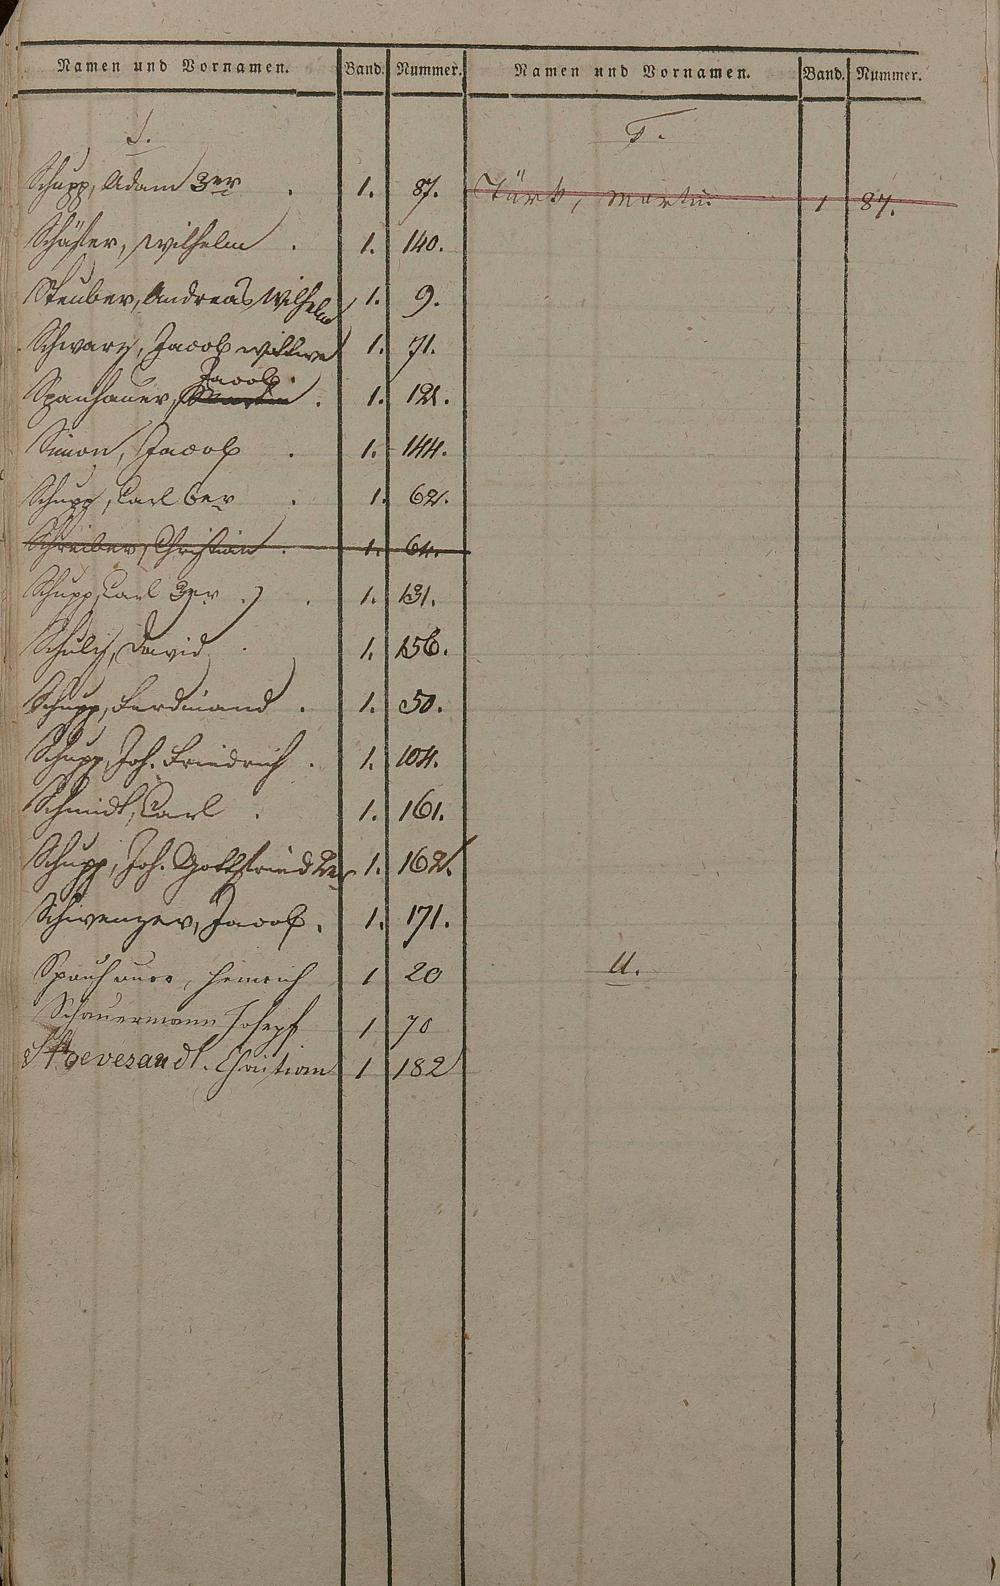 Namen und Vornamen. Band. Nummer.
S.
Schupp, Adam 3er . 1. 87.
Schäfer, Wilhelm . 1. 140.
Steuber, Andreas Wilhelm 1. 9.
Schwarz, Jacob Wittwe 1. 71.
Jacob.
Spanhauer, Martin . 1. 121.
Simon, Jacob . 1. 144.
Schupp, Carl 6er . 1. 62.
Schreiber, Christian . 1. 64.
Schupp, Carl 3er . 1. 131.
Schulz, David . 1. 156.
Schupp, Ferdinand . 1. 50.
Schupp, Joh. Friedrich . 1. 104.
Schmidt, Carl . 1. 161.
Schupp, Joh. Gottfried 2er 1. 162.
Schwenzer, Jacob . 1. 171.
Spanhauer, Heinrich 1 20
Schauermann Joseph 1 70
Christian 1 182
Namen und Vornamen. Band. Nummer.
T.
Türk, Martin 1 87.
U.